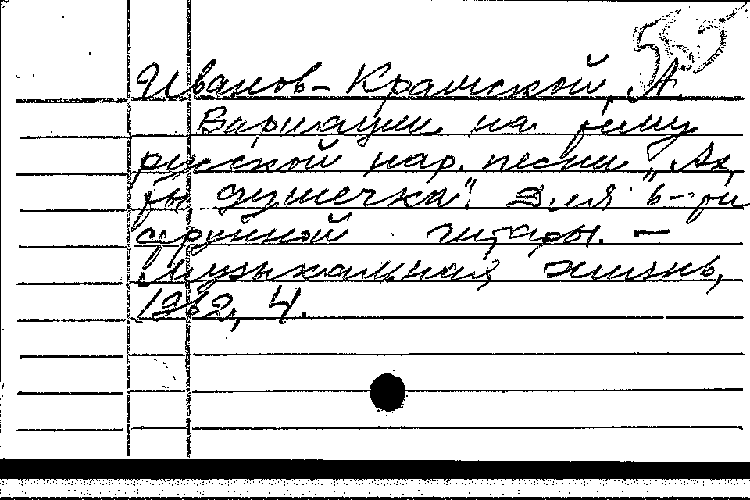 555
Иванов-Крамской, А.
Вариации на тему
русской нар. песни „Ах,
ты душечка". Для 6-ти
струнной гитары. —
Музыкальная жизнь,
1962, 4.